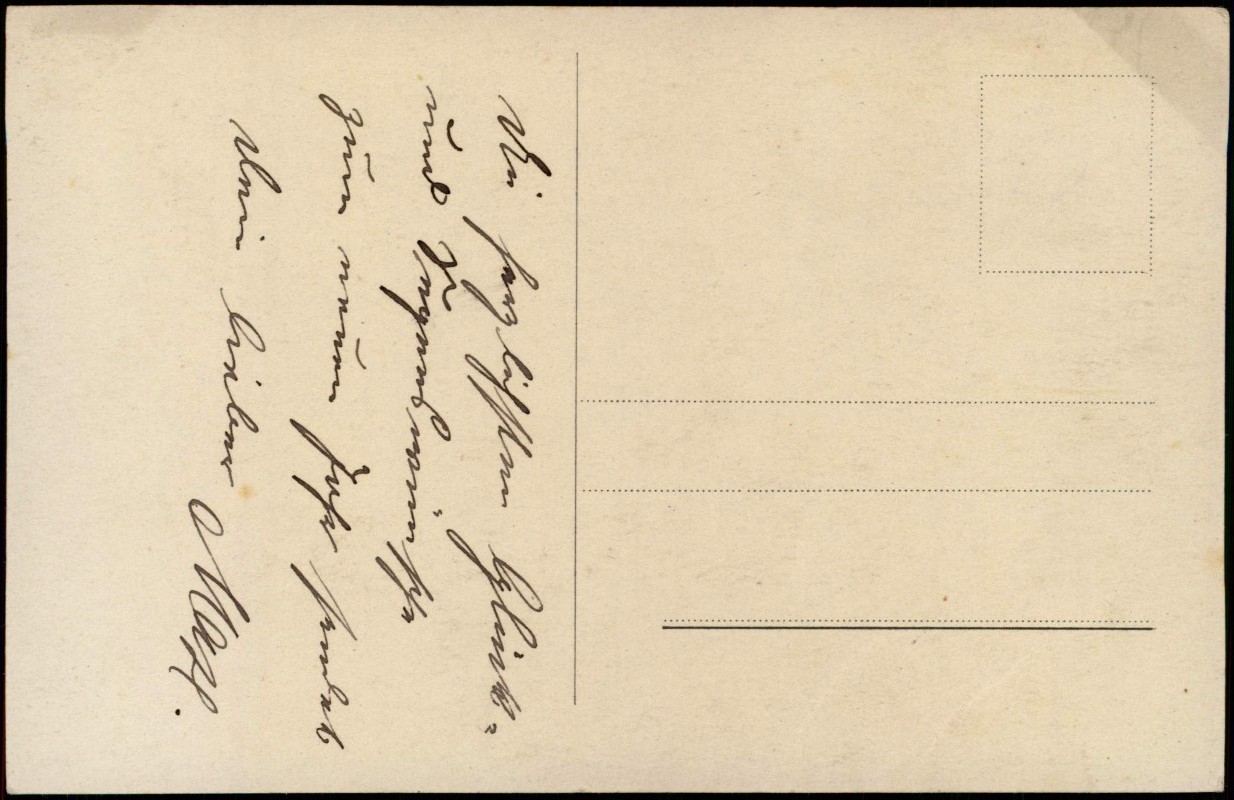 Die herzlichsten Glück-
und Segenswünsche
zum neuen Jahr sendet
Dein lieber